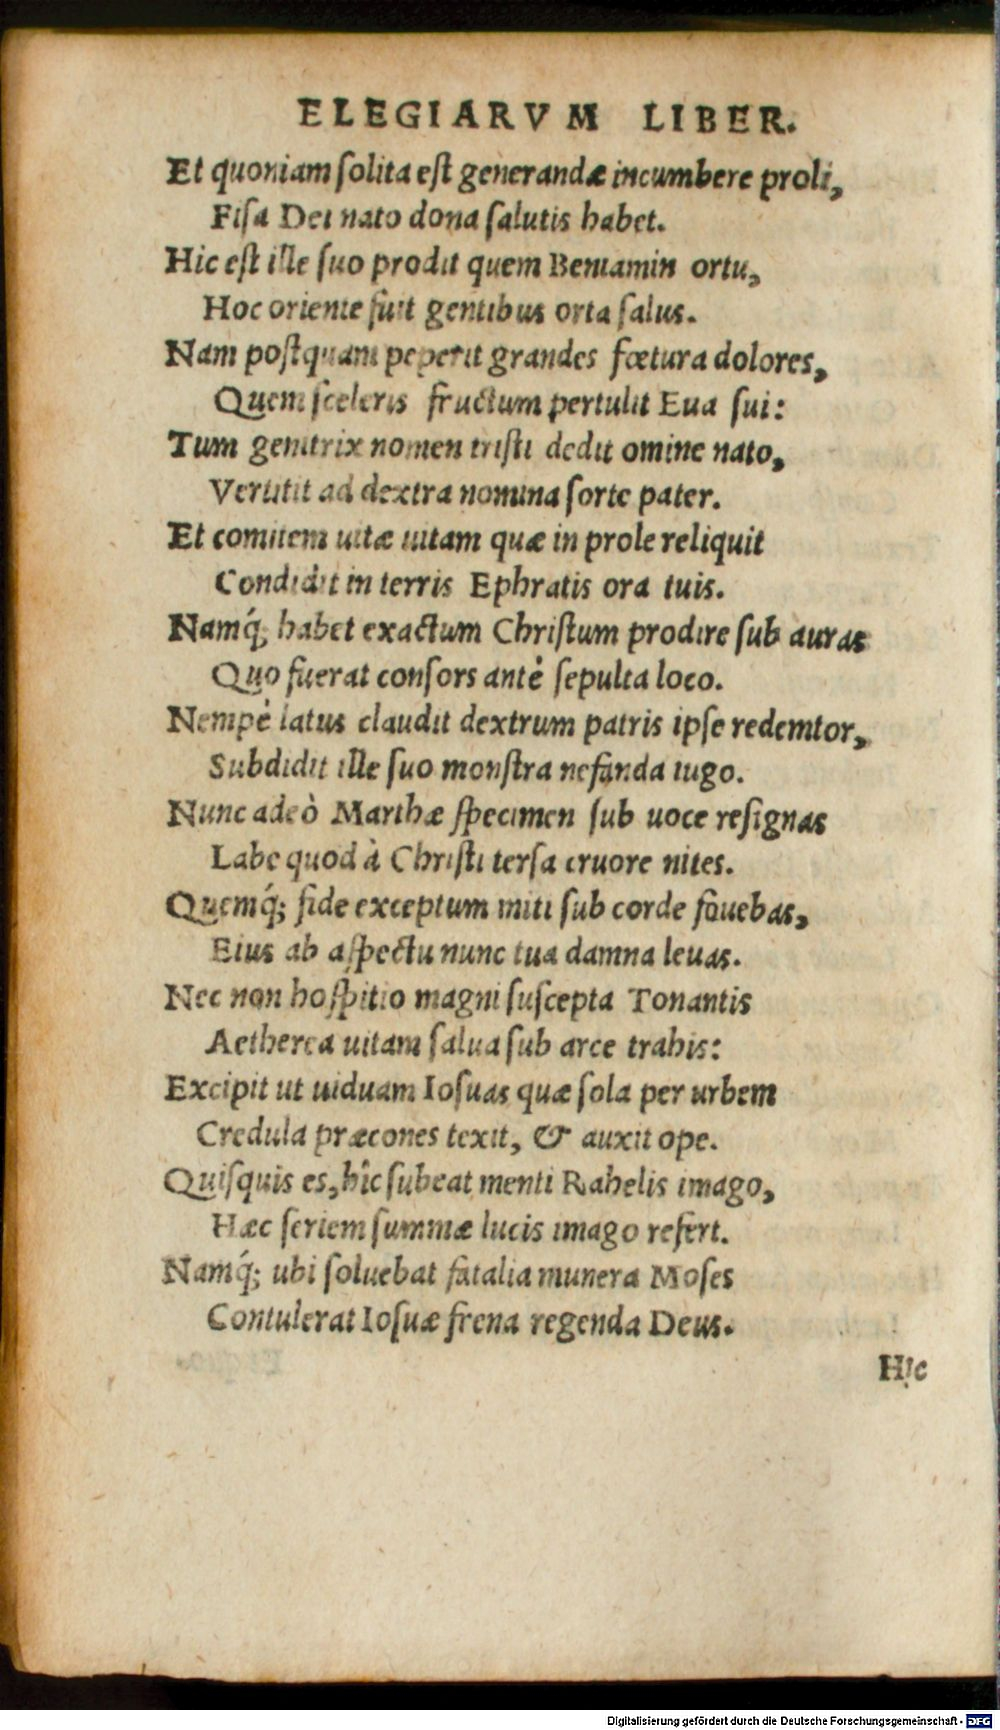 ELEGIARVM LIBER.
Et quoniam ſolita eſt generandæ incumbere proli,
Fiſa Dei nato dona ſalutis habet.
Hic eſt ille ſuo prodit quem Beniamin ortu,
Hoc oriente fuit gentibus orta ſalus.
Nam poſtquam peperit grandes fœtura dolores,
Quem ſceleris fructum pertulit Eua ſui:
Tum genitrix nomen triſti dedit omine nato,
Vertitit ad dextra nomina ſorte pater.
Et comitem uitæ uitam quæ in prole reliquit
Condidit in terris Ephratis ora tuis.
Namq́; habet exactum Chriſtum prodire ſub auras
Quo fuerat conſors antè ſepulta loco.
Nempè latus claudit dextrum patris ipſe redemtor,
Subdidit ille ſuo monſtra nefanda iugo.
Nunc adeò Marthæ ſpecimen ſub uoce reſignas
Labe quod à Chriſti terſa cruore nites.
Quemq́; fide exceptum miti ſub corde fouebas,
Eius ab aſpectu nunc tua damna leuas.
Nec non hoſpitio magni ſuſcepta Tonantis
Aetherea uitam ſalua ſub arce trahis:
Excipit ut uiduam Ioſuas quæ ſola per urbem
Credula præcones texit, & auxit ope.
Quiſquis es, hîc ſubeat menti Rahelis imago,
Hæc ſeriem ſummæ lucis imago refert.
Namq́; ubi ſoluebat fatalia munera Moſes
Contulerat Ioſuæ frena regenda Deus.
Hic
Digitalisierung gefördert durch die Deutsche Forschungsgemeinschaft - DFG